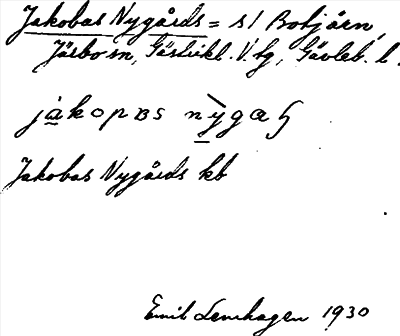 Jakobas Nygårds = s/ Botjärn,
Järbo sn, Gästrikl. V. tg, Gävleb. l.
jakopas nygaɧ
Jakobas Nygårds kb
Emil Lenhagen 1930